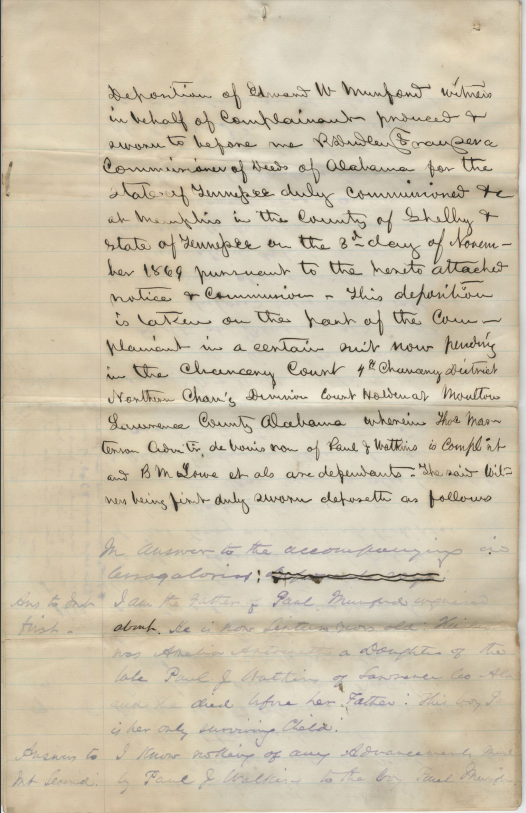 Deposition of Edward W Munford witness
in behalf of Complainant produced &
sworn to before me P. Dudley Frauser a
Commissioner of Deeds of Alabama for the
State of Tennessee duly commissioned &c
at Memphis in the County of Shelby &
State of Tennessee on the 3d day of Novem-
ber 1869 pursuant to the hereto attached
notice & Commission - This deposition
is taken on the part of the Com-
plainant in a certain suit now pending
in the Chancery Court 4th Chancery District
Northern Chan'y Division Court Holden at Moulton
Lawrence County Alabama wherein Thos Mas-
terson Admtr. de bonis non of Paul J Watkins is Compl'nt
and B M Lowe et als are defendants - The said Wit-
ness being first duly sworn deposeth as follows
In Answer to the accompanying in-
terrogatories:
Ans to Int
first. I am the Father of Paul Munford enquired
about. He is now sixteen years old. His
was Amelia a Daughter of the
late Paul J Watkins of Lawrence Co Ala
and she died before her Father: This boy
is her only surviving Child.
Answer to I know nothing of any Advancements
Int Second. by Paul J Watkins to the boy Paul